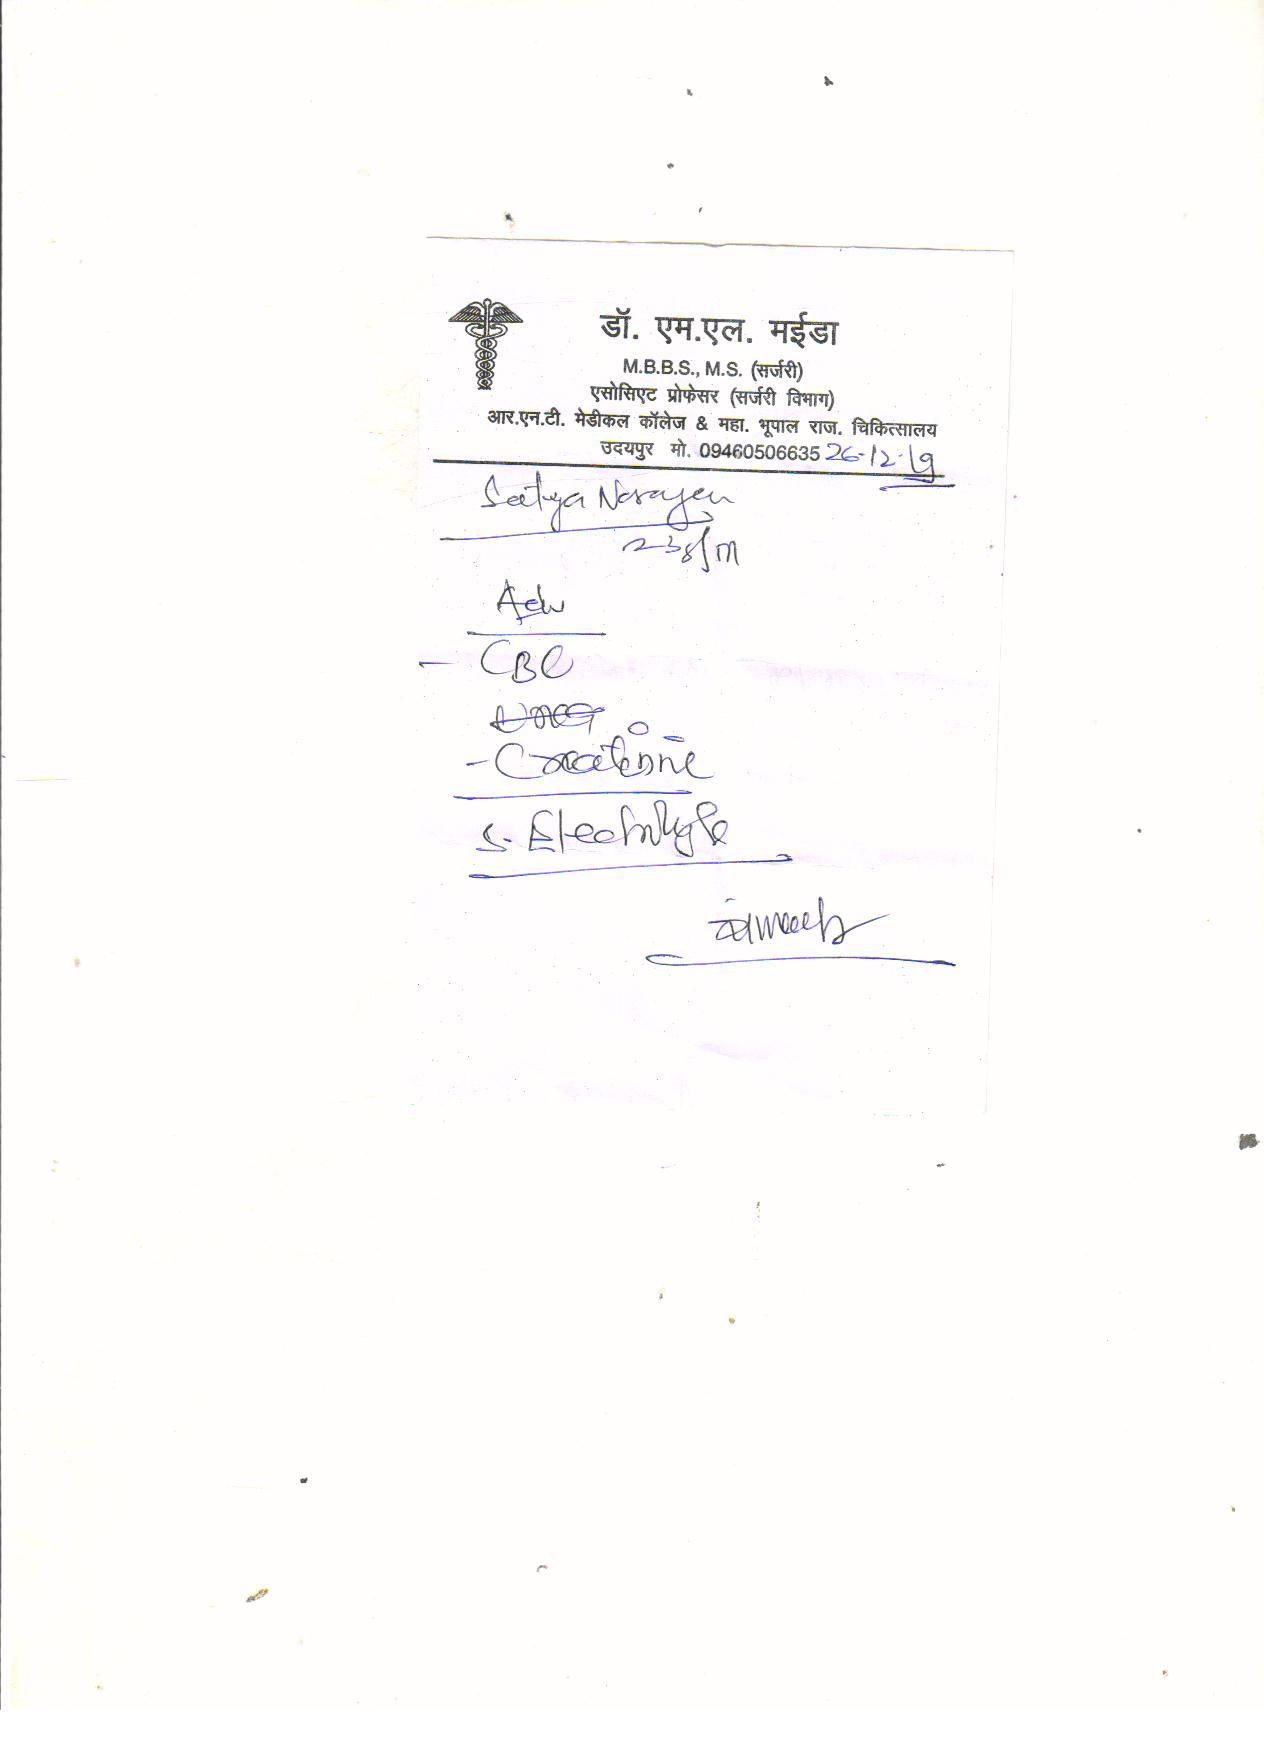 डॉ. एम.एल. मईडा
M.B.B.S., M.S. (सर्जरी)
एसोसिएट प्रोफेसर (सर्जरी विभाग)
आर.एन.टी. मेडीकल कॉलेज & महा. भूपाल राज. चिकित्सालय
उदयपुर मो. 09460506635 26-12-19
Satya Narayan
23y/m
Adv
- CBC
- Creatinine
S. Electrolyte